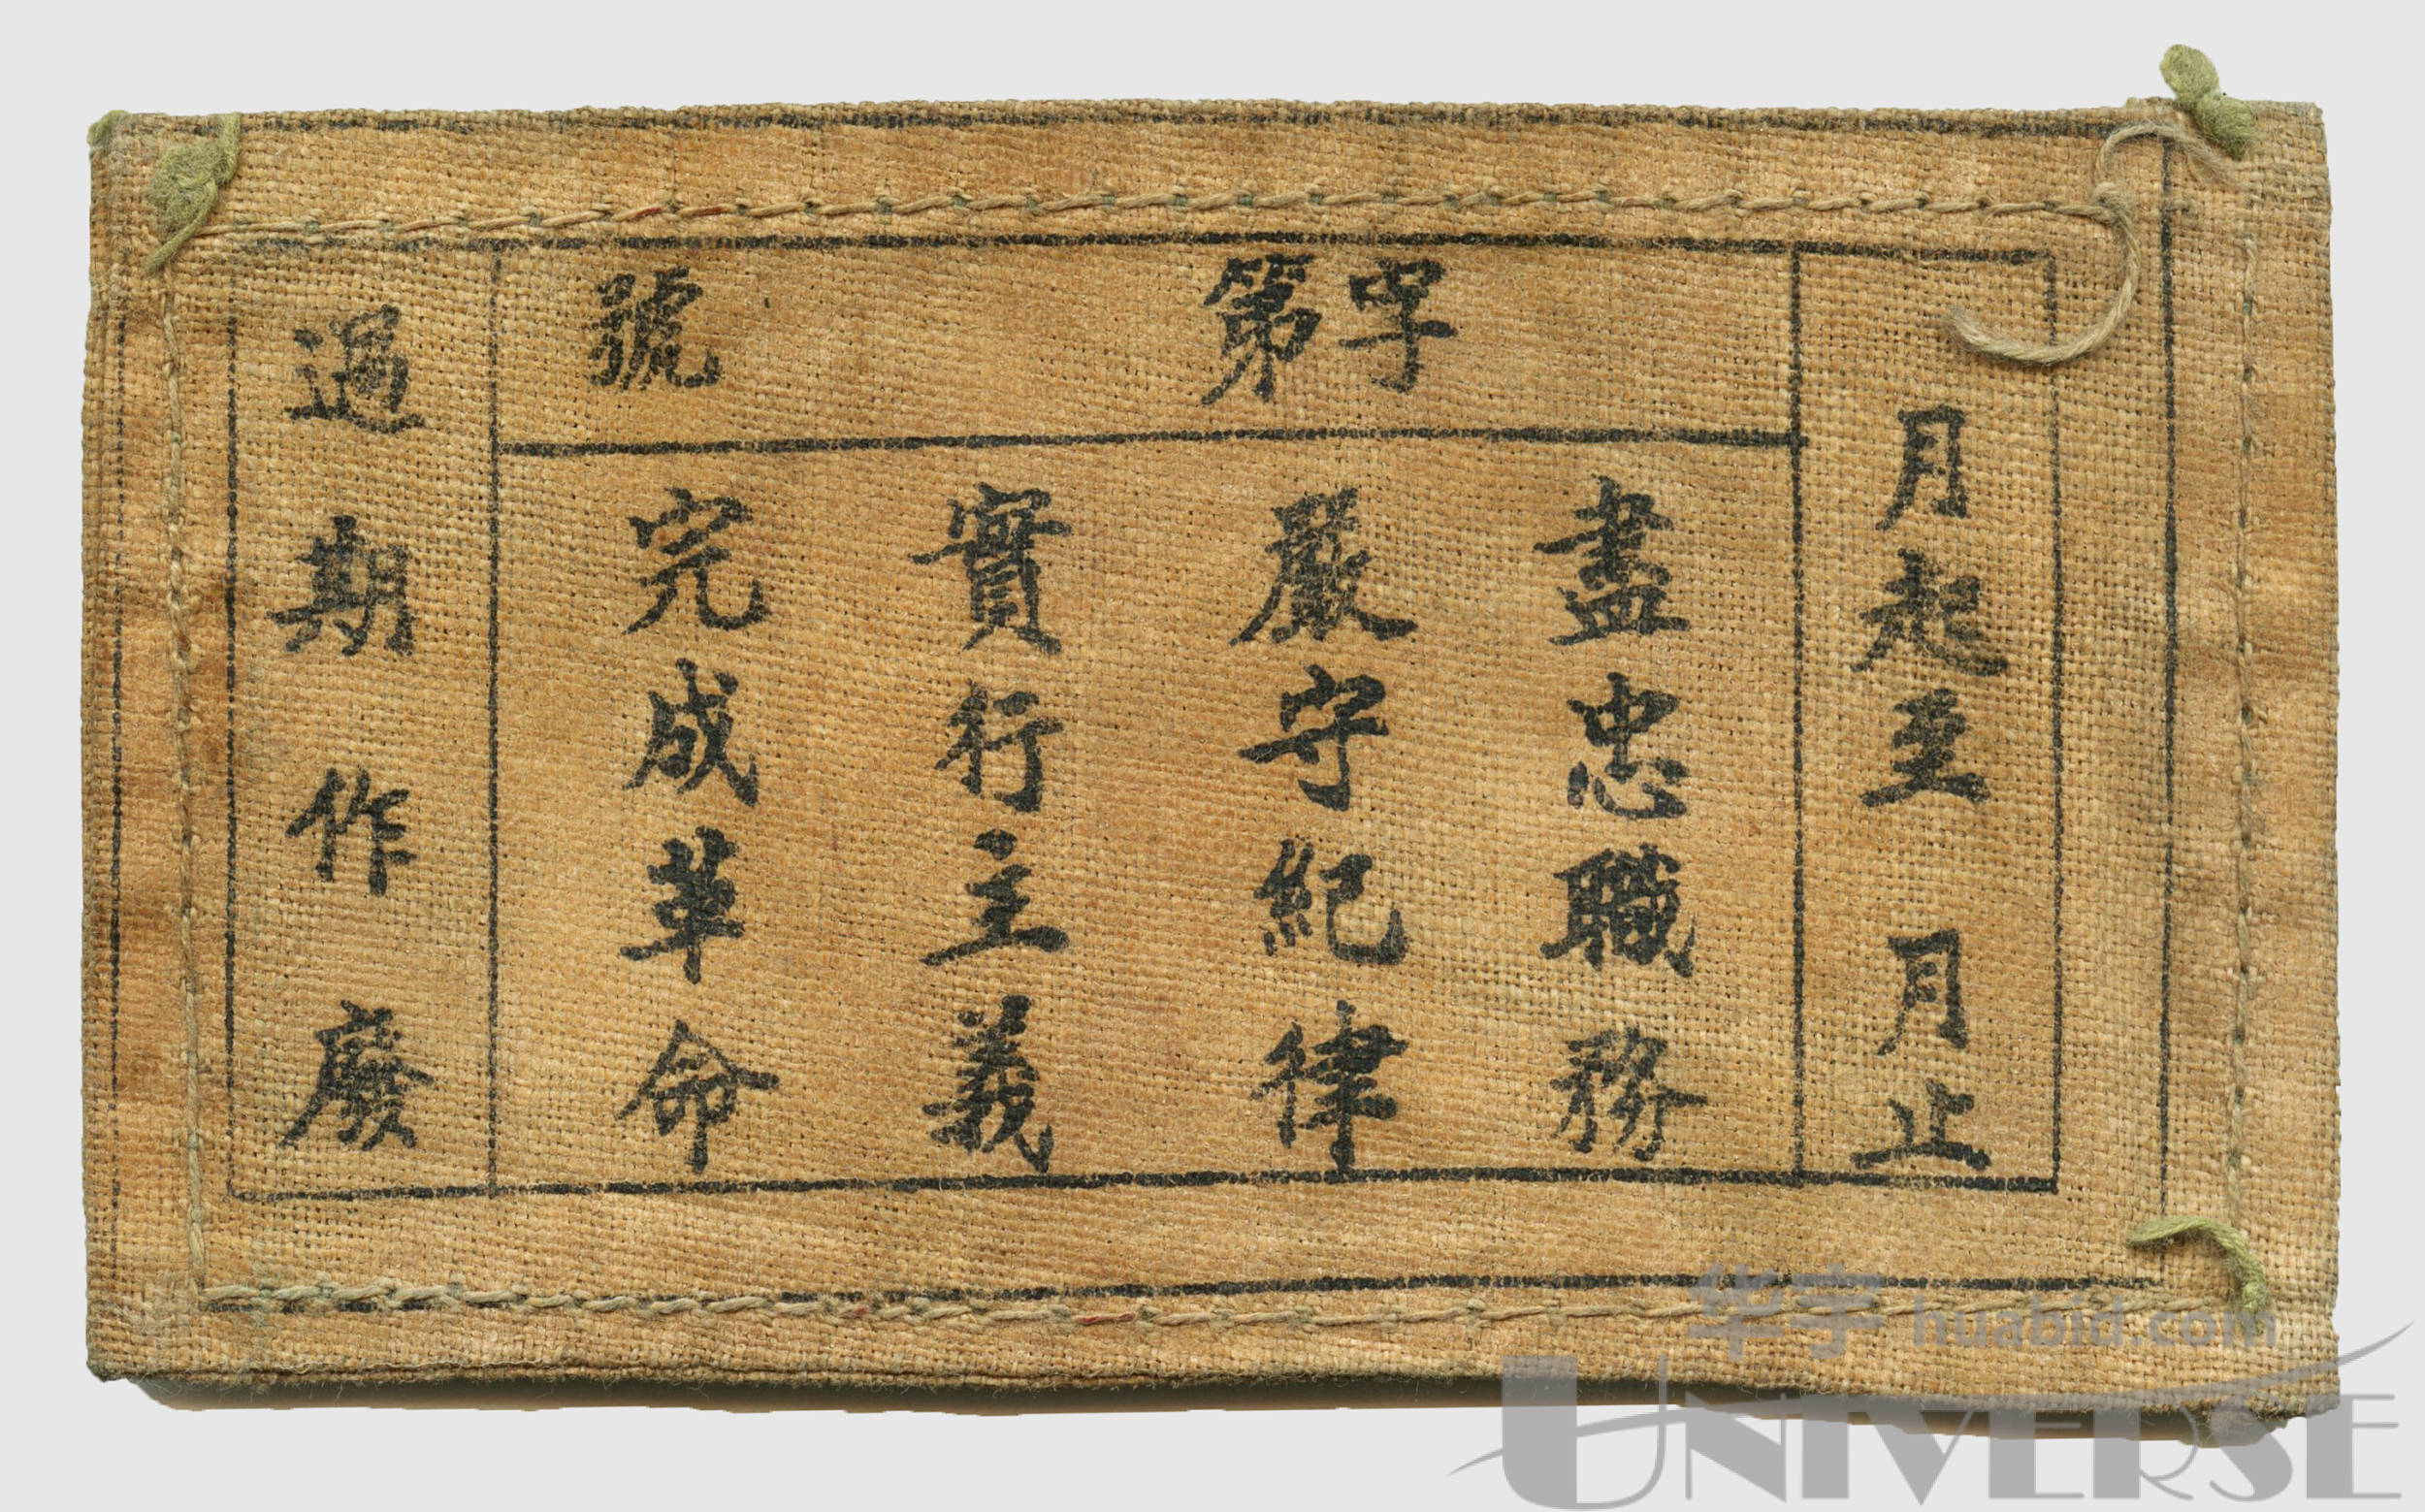 月起至　月止
字第　號
盡忠職務
嚴守紀律
實行主義
完成革命
過期作廢
华宇 huabid.com
UNIVERSE